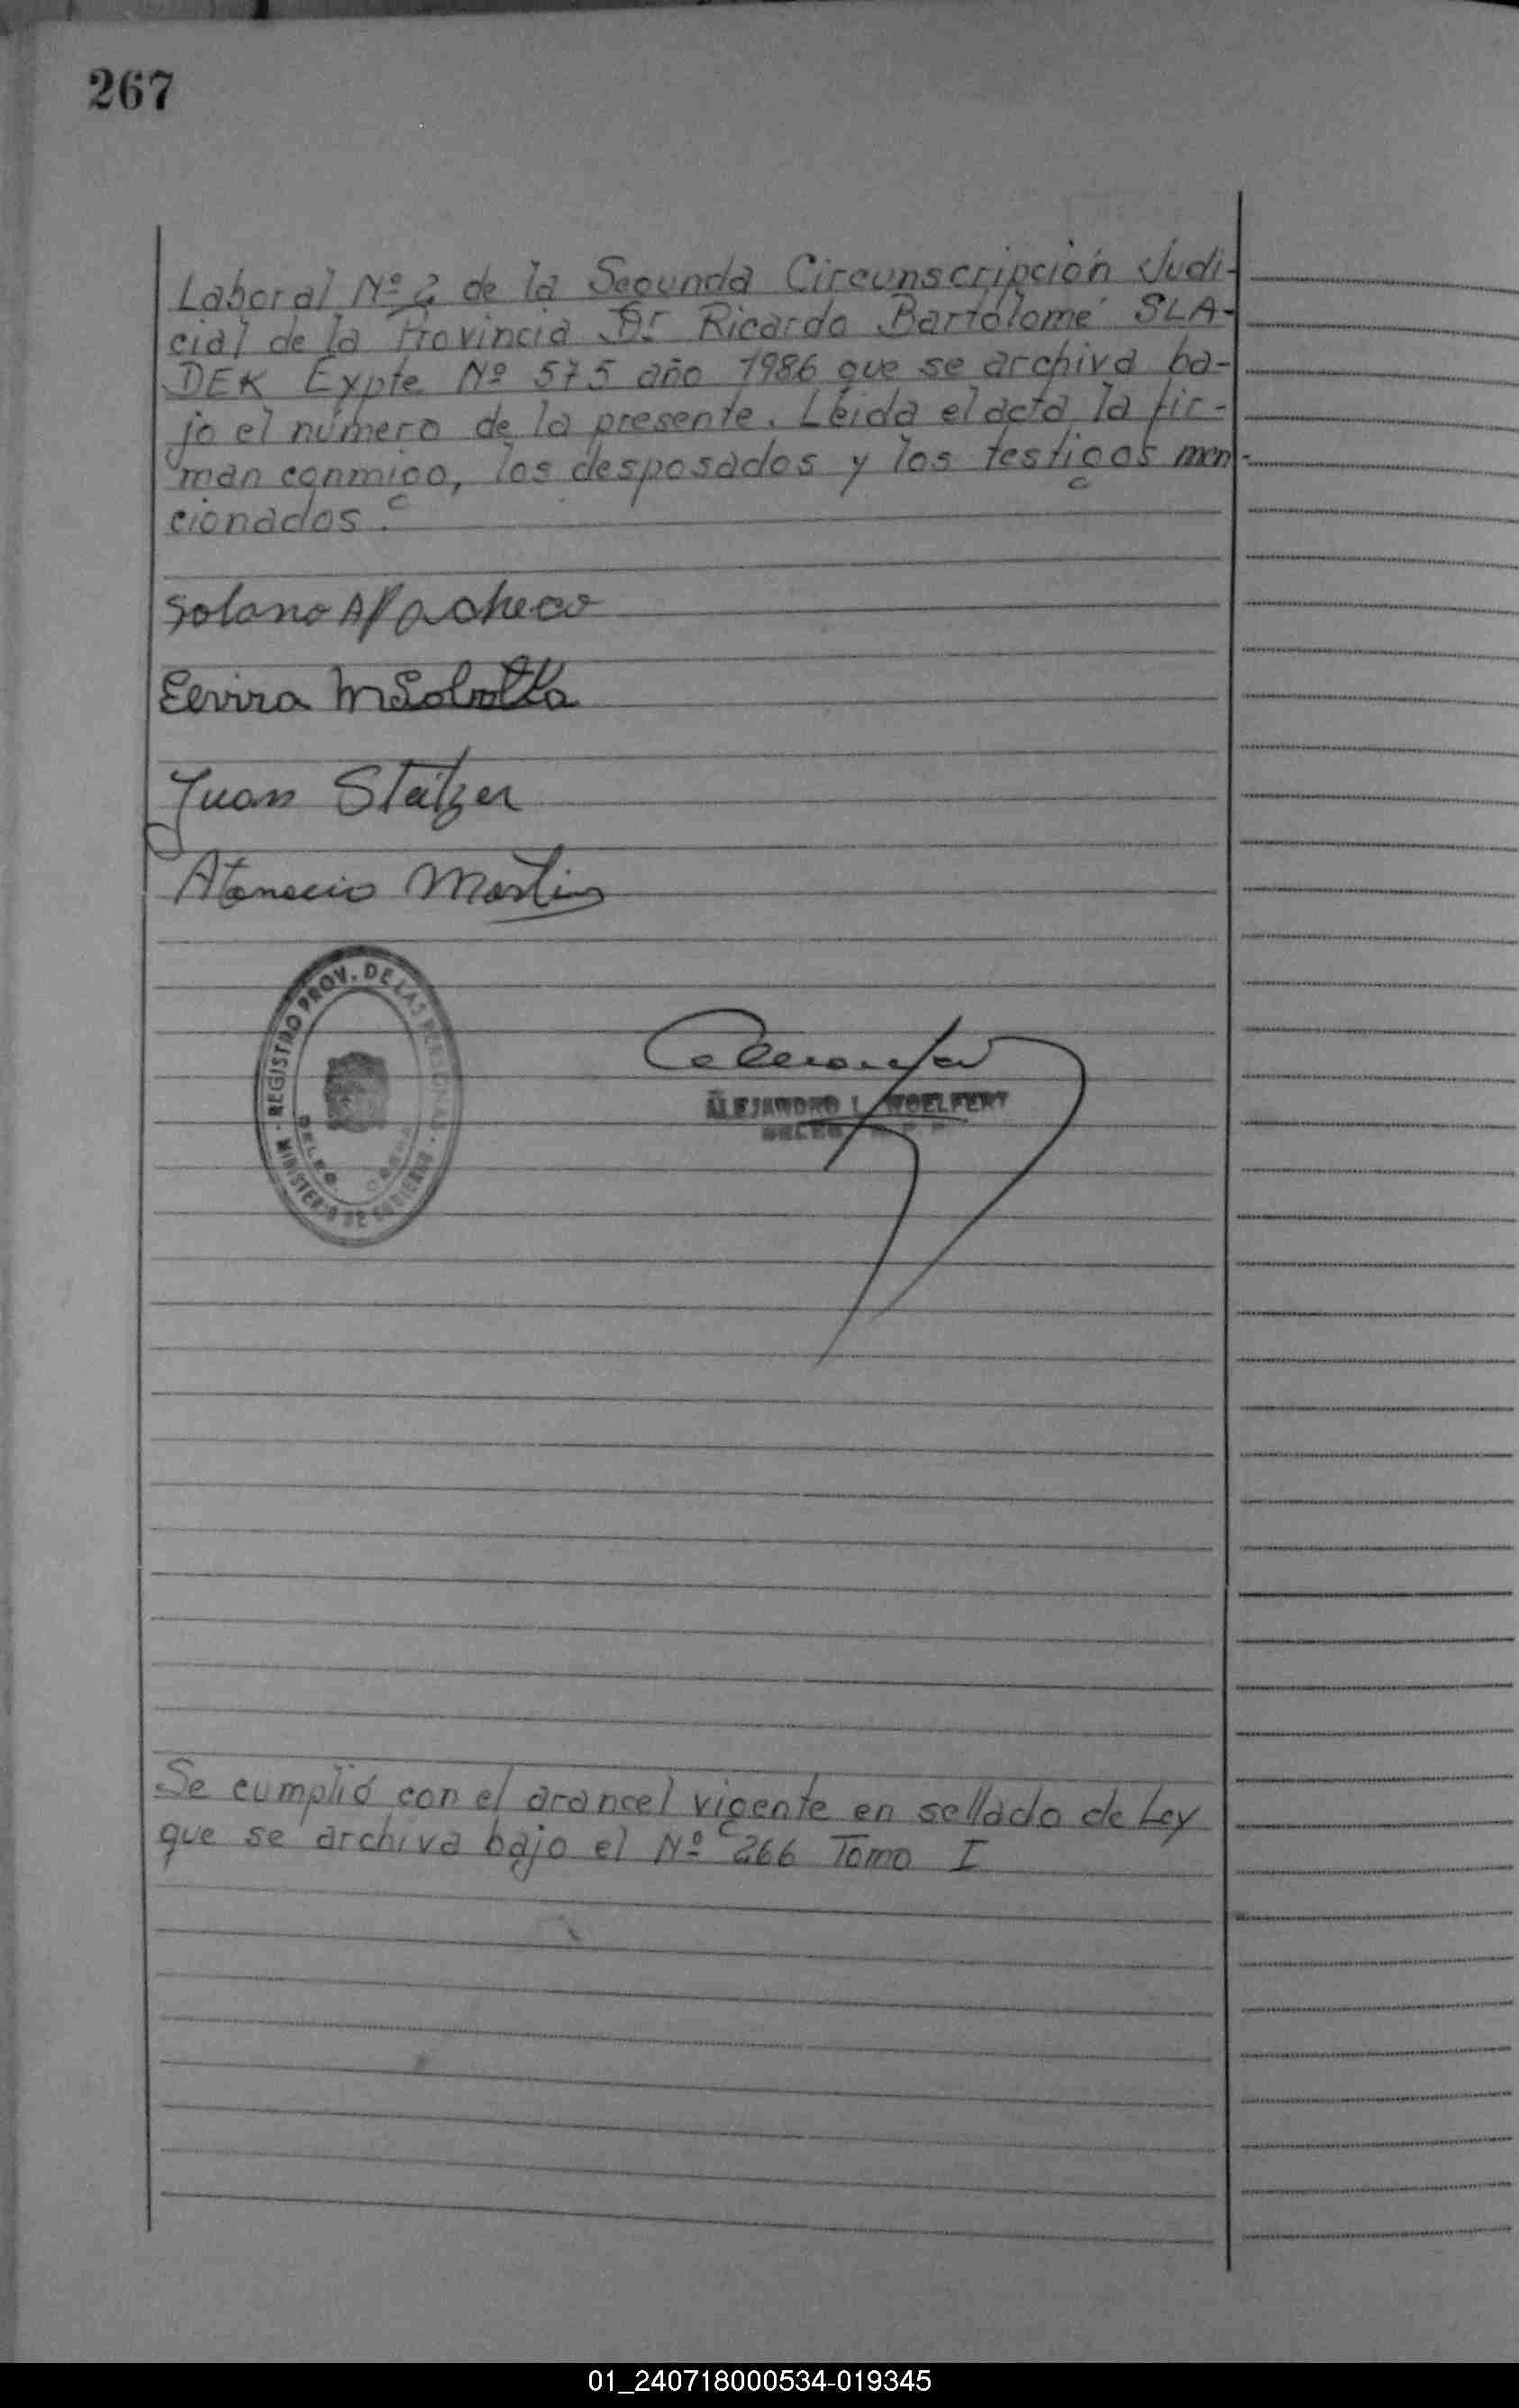 267
Laboral Nº 2 de la Segunda Circunscripción Judi-
cial de la Provincia Dr Ricardo Bartolomé SLA-
DEK Expte Nº 575 año 1986 que se archiva ba-
jo el número de la presente. Leida el acta, la fir-
man conmigo, los desposados y los testigos men-
cionados.
Solano A Pacheco
Elvira M Sobotta
Juan
Atanacio Martins
· REGISTRO PROV. DE LAS PERSONAS · MINISTERIO DE GOBIERNO
DELEG.
ALEJANDRO L. WOELFERT
Se cumplió con el arancel vigente en sellado de Ley
que se archiva bajo el Nº 266 Tomo I
01_240718000534-019345